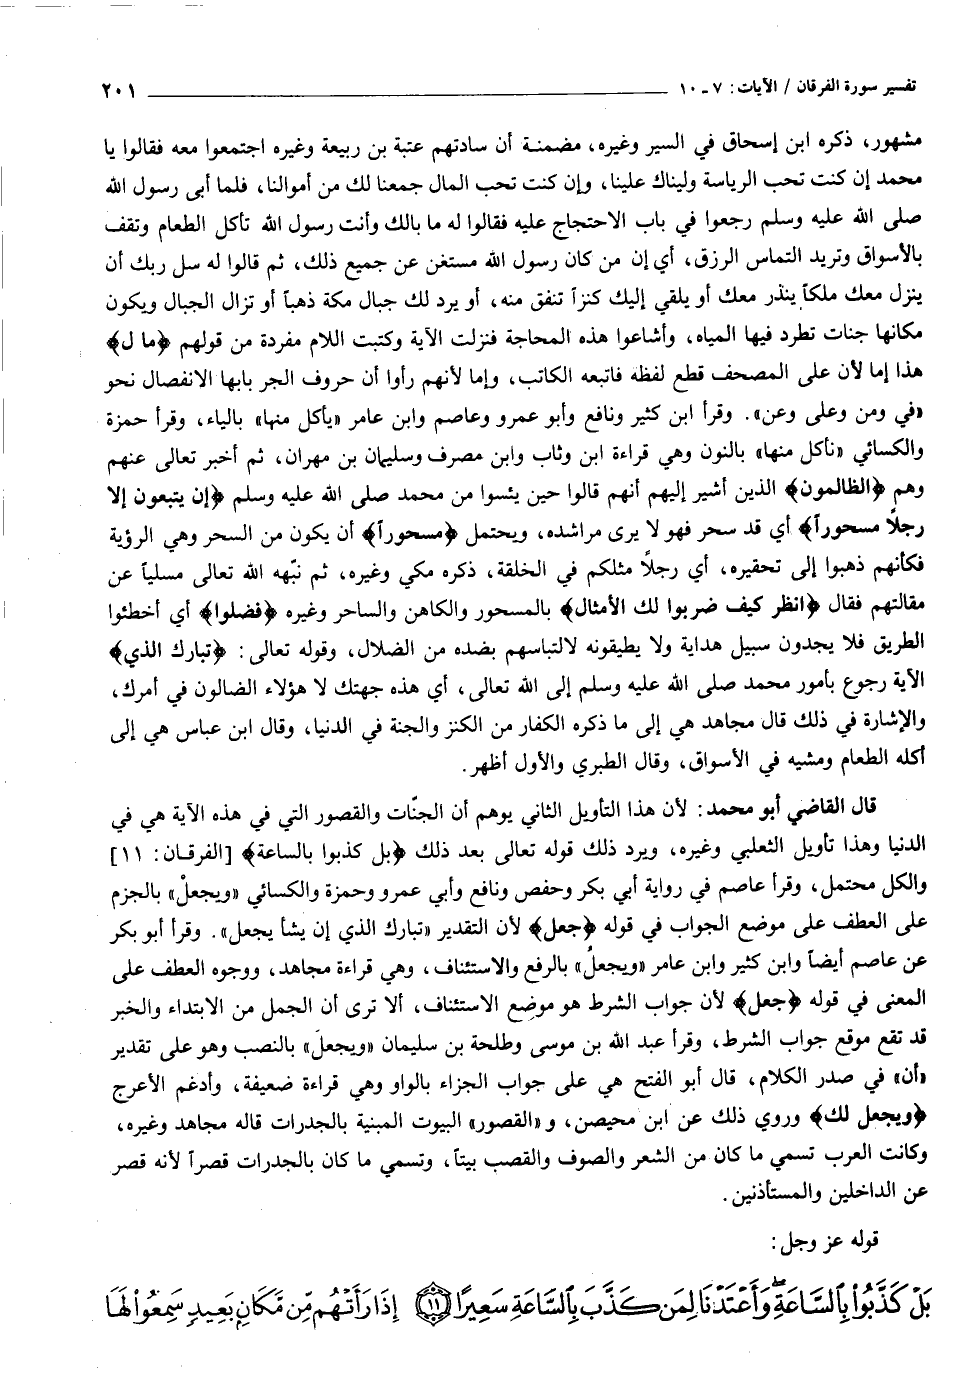 تفسير سورة الفرقان / الآيات: ٧ ـ ١٠ ٢٠١
مشهور، ذكره ابن إسحاق في السير وغيره، مضمنة أن سادتهم عتبة بن ربيعة وغيره اجتمعوا معه فقالوا يا
محمد إن كنت تحب الرياسة وليناك علينا، وإن كنت تحب المال جمعنا لك من أموالنا، فلما أبى رسول الله
صلى الله عليه وسلم رجعوا في باب الاحتجاج عليه فقالوا له ما بالك وأنت رسول الله تأكل الطعام وتقف
بالأسواق وتريد التماس الرزق، أي إن من كان رسول الله مستغن عن جميع ذلك، ثم قالوا له سل ربك أن
ينزل معك ملكاً ينذر معك أو يلقي إليك كنزاً تنفق منه، أو يرد لك جبال مكة ذهباً أو تزال الجبال ويكون
مكانها جنات تطرد فيها المياه، وأشاعوا هذه المحاجة فنزلت الآية وكتبت اللام مفردة من قولهم ﴿ما ل﴾
هذا إما لأن على المصحف قطع لفظه فاتبعه الكاتب، وإما لأنهم رأوا أن حروف الجر بابها الانفصال نحو
«في ومن وعلى وعن». وقرأ ابن كثير ونافع وأبو عمرو وعاصم وابن عامر «يأكل منها» بالياء، وقرأ حمزة
والكسائي «نأكل منها» بالنون وهي قراءة ابن وثاب وابن مصرف وسليمان بن مهران، ثم أخبر تعالى عنهم
وهم ﴿الظالمون﴾ الذين أشير إليهم أنهم قالوا حين يئسوا من محمد صلى الله عليه وسلم ﴿إن يتبعون إلا
رجلاً مسحوراً﴾ أي قد سحر فهو لا يرى مراشده، ويحتمل ﴿مسحوراً﴾ أن يكون من السحر وهي الرؤية
فكأنهم ذهبوا إلى تحقيره، أي رجلاً مثلكم في الخلقة، ذكره مكي وغيره، ثم نبّهه الله تعالى مسلياً عن
مقالتهم فقال ﴿انظر كيف ضربوا لك الأمثال﴾ بالمسحور والكاهن والساحر وغيره ﴿فضلوا﴾ أي أخطئوا
الطريق فلا يجدون سبيل هداية ولا يطيقونه لالتباسهم بضده من الضلال، وقوله تعالى: ﴿تبارك الذي﴾
الآية رجوع بأمور محمد صلى الله عليه وسلم إلى الله تعالى، أي هذه جهتك لا هؤلاء الضالون في أمرك،
والإشارة في ذلك قال مجاهد هي إلى ما ذكره الكفار من الكنز والجنة في الدنيا، وقال ابن عباس هي إلى
أكله الطعام ومشيه في الأسواق، وقال الطبري والأول أظهر.
قال القاضي أبو محمد: لأن هذا التأويل الثاني يوهم أن الجنّات والقصور التي في هذه الآية هي في
الدنيا وهذا تأويل الثعلبي وغيره، ويرد ذلك قوله تعالى بعد ذلك ﴿بل كذبوا بالساعة﴾ [الفرقان: ١١]
والكل محتمل، وقرأ عاصم في رواية أبي بكر وحفص ونافع وأبي عمرو وحمزة والكسائي «ويجعلْ» بالجزم
على العطف على موضع الجواب في قوله ﴿جعل﴾ لأن التقدير «تبارك الذي إن يشأ يجعل». وقرأ أبو بكر
عن عاصم أيضاً وابن كثير وابن عامر «ويجعلُ» بالرفع والاستئناف، وهي قراءة مجاهد، ووجوه العطف على
المعنى في قوله ﴿جعل﴾ لأن جواب الشرط هو موضع الاستئناف، ألا ترى أن الجمل من الابتداء والخبر
قد تقع موقع جواب الشرط، وقرأ عبد الله بن موسى وطلحة بن سليمان «ويجعلَ» بالنصب وهو على تقدير
«أن» في صدر الكلام، قال أبو الفتح هي على جواب الجزاء بالواو وهي قراءة ضعيفة، وأدغم الأعرج
﴿ويجعل لك﴾ وروي ذلك عن ابن محيصن، و«القصور» البيوت المبنية بالجدرات قاله مجاهد وغيره،
وكانت العرب تسمي ما كان من الشعر والصوف والقصب بيتاً، وتسمي ما كان بالجدرات قصراً لأنه قصر
عن الداخلين والمستأذنين.
قوله عز وجل:
بَلْ كَذَّبُواْ بِالسَّاعَةِ وَأَعْتَدْنَا لِمَن كَذَّبَ بِالسَّاعَةِ سَعِيرًا ﴿١١﴾ إِذَا رَأَتْهُم مِّن مَّكَانٍ بَعِيدٍ سَمِعُواْ لَهَا